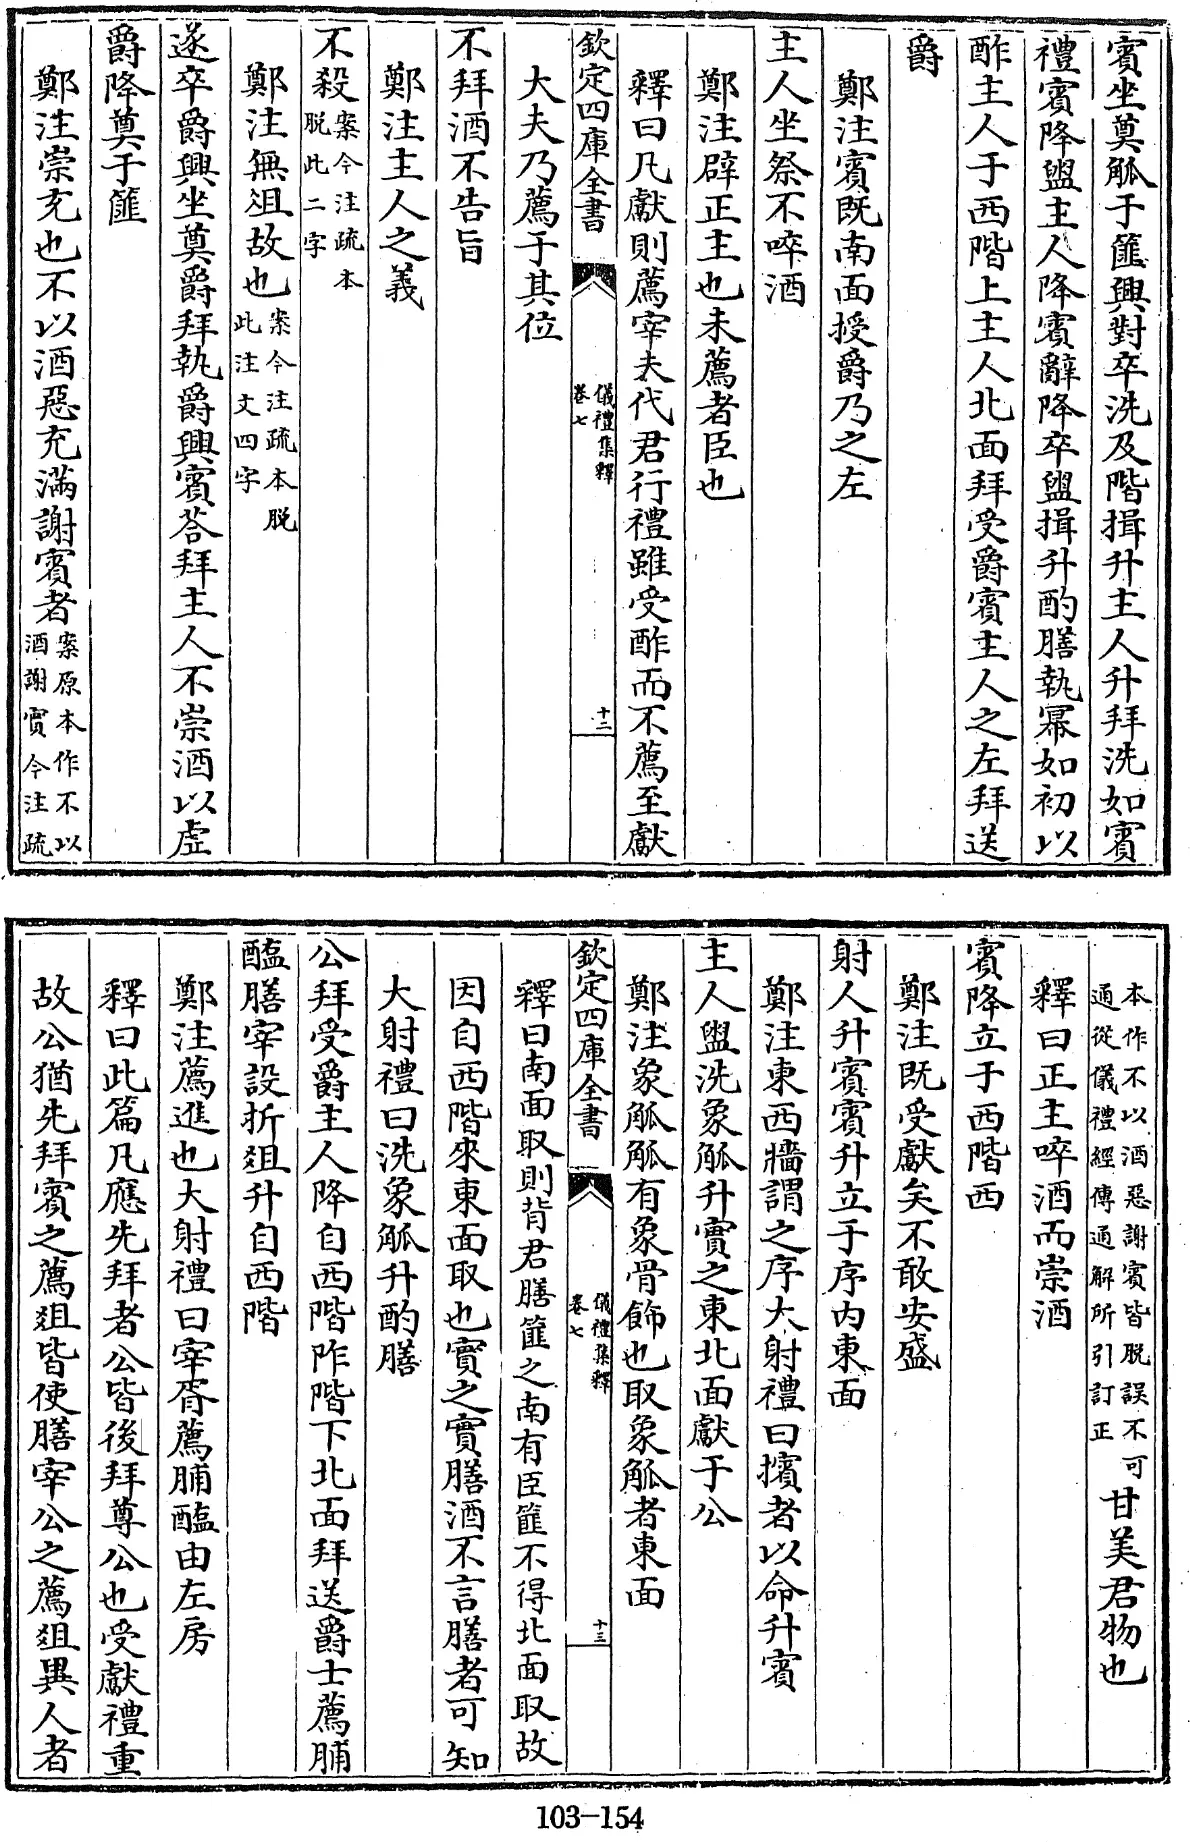 賓坐奠觚于篚興對卒洗及階揖升主人升拜洗如賓
禮賓降盥主人降賓辭降卒盥揖升酌膳執冪如初以
酢主人于西階上主人北面拜受爵賓主人之左拜送
爵
鄭注賓既南面授爵乃之左
主人坐祭不啐酒
鄭注辟正主也未薦者臣也
釋曰凡獻則薦宰夫代君行禮雖受酢而不薦至獻
欽定四庫全書
儀禮集釋
卷七
十二
大夫乃薦于其位
不拜酒不告旨
鄭注主人之義
不殺案今注疏本
脱此二字
鄭注無俎故也案今注疏本脱
此注文四字
遂卒爵興坐奠爵拜執爵興賓荅拜主人不崇酒以虛
爵降奠于篚
鄭注崇充也不以酒惡充滿謝賓者案原本作不以
酒謝賓今注疏
本作不以酒惡謝賓皆脱誤不可
通從儀禮經傳通解所引訂正
甘美君物也
釋曰正主啐酒而崇酒
賓降立于西階西
鄭注既受獻矣不敢安盛
射人升賓賓升立于序內東面
鄭注東西牆謂之序大射禮曰擯者以命升賓
主人盥洗象觚升實之東北面獻于公
鄭注象觚觚有象骨飾也取象觚者東面
欽定四庫全書
儀禮集釋
卷七
十三
釋曰南面取則背君膳篚之南有臣篚不得北面取故
因自西階來東面取也實之實膳酒不言膳者可知
大射禮曰洗象觚升酌膳
公拜受爵主人降自西階阼階下北面拜送爵士薦脯
醢膳宰設折俎升自西階
鄭注薦進也大射禮曰宰胥薦脯醢由左房
釋曰此篇凡應先拜者公皆後拜尊公也受獻禮重
故公猶先拜賓之薦俎皆使膳宰公之薦俎異人者
103-154